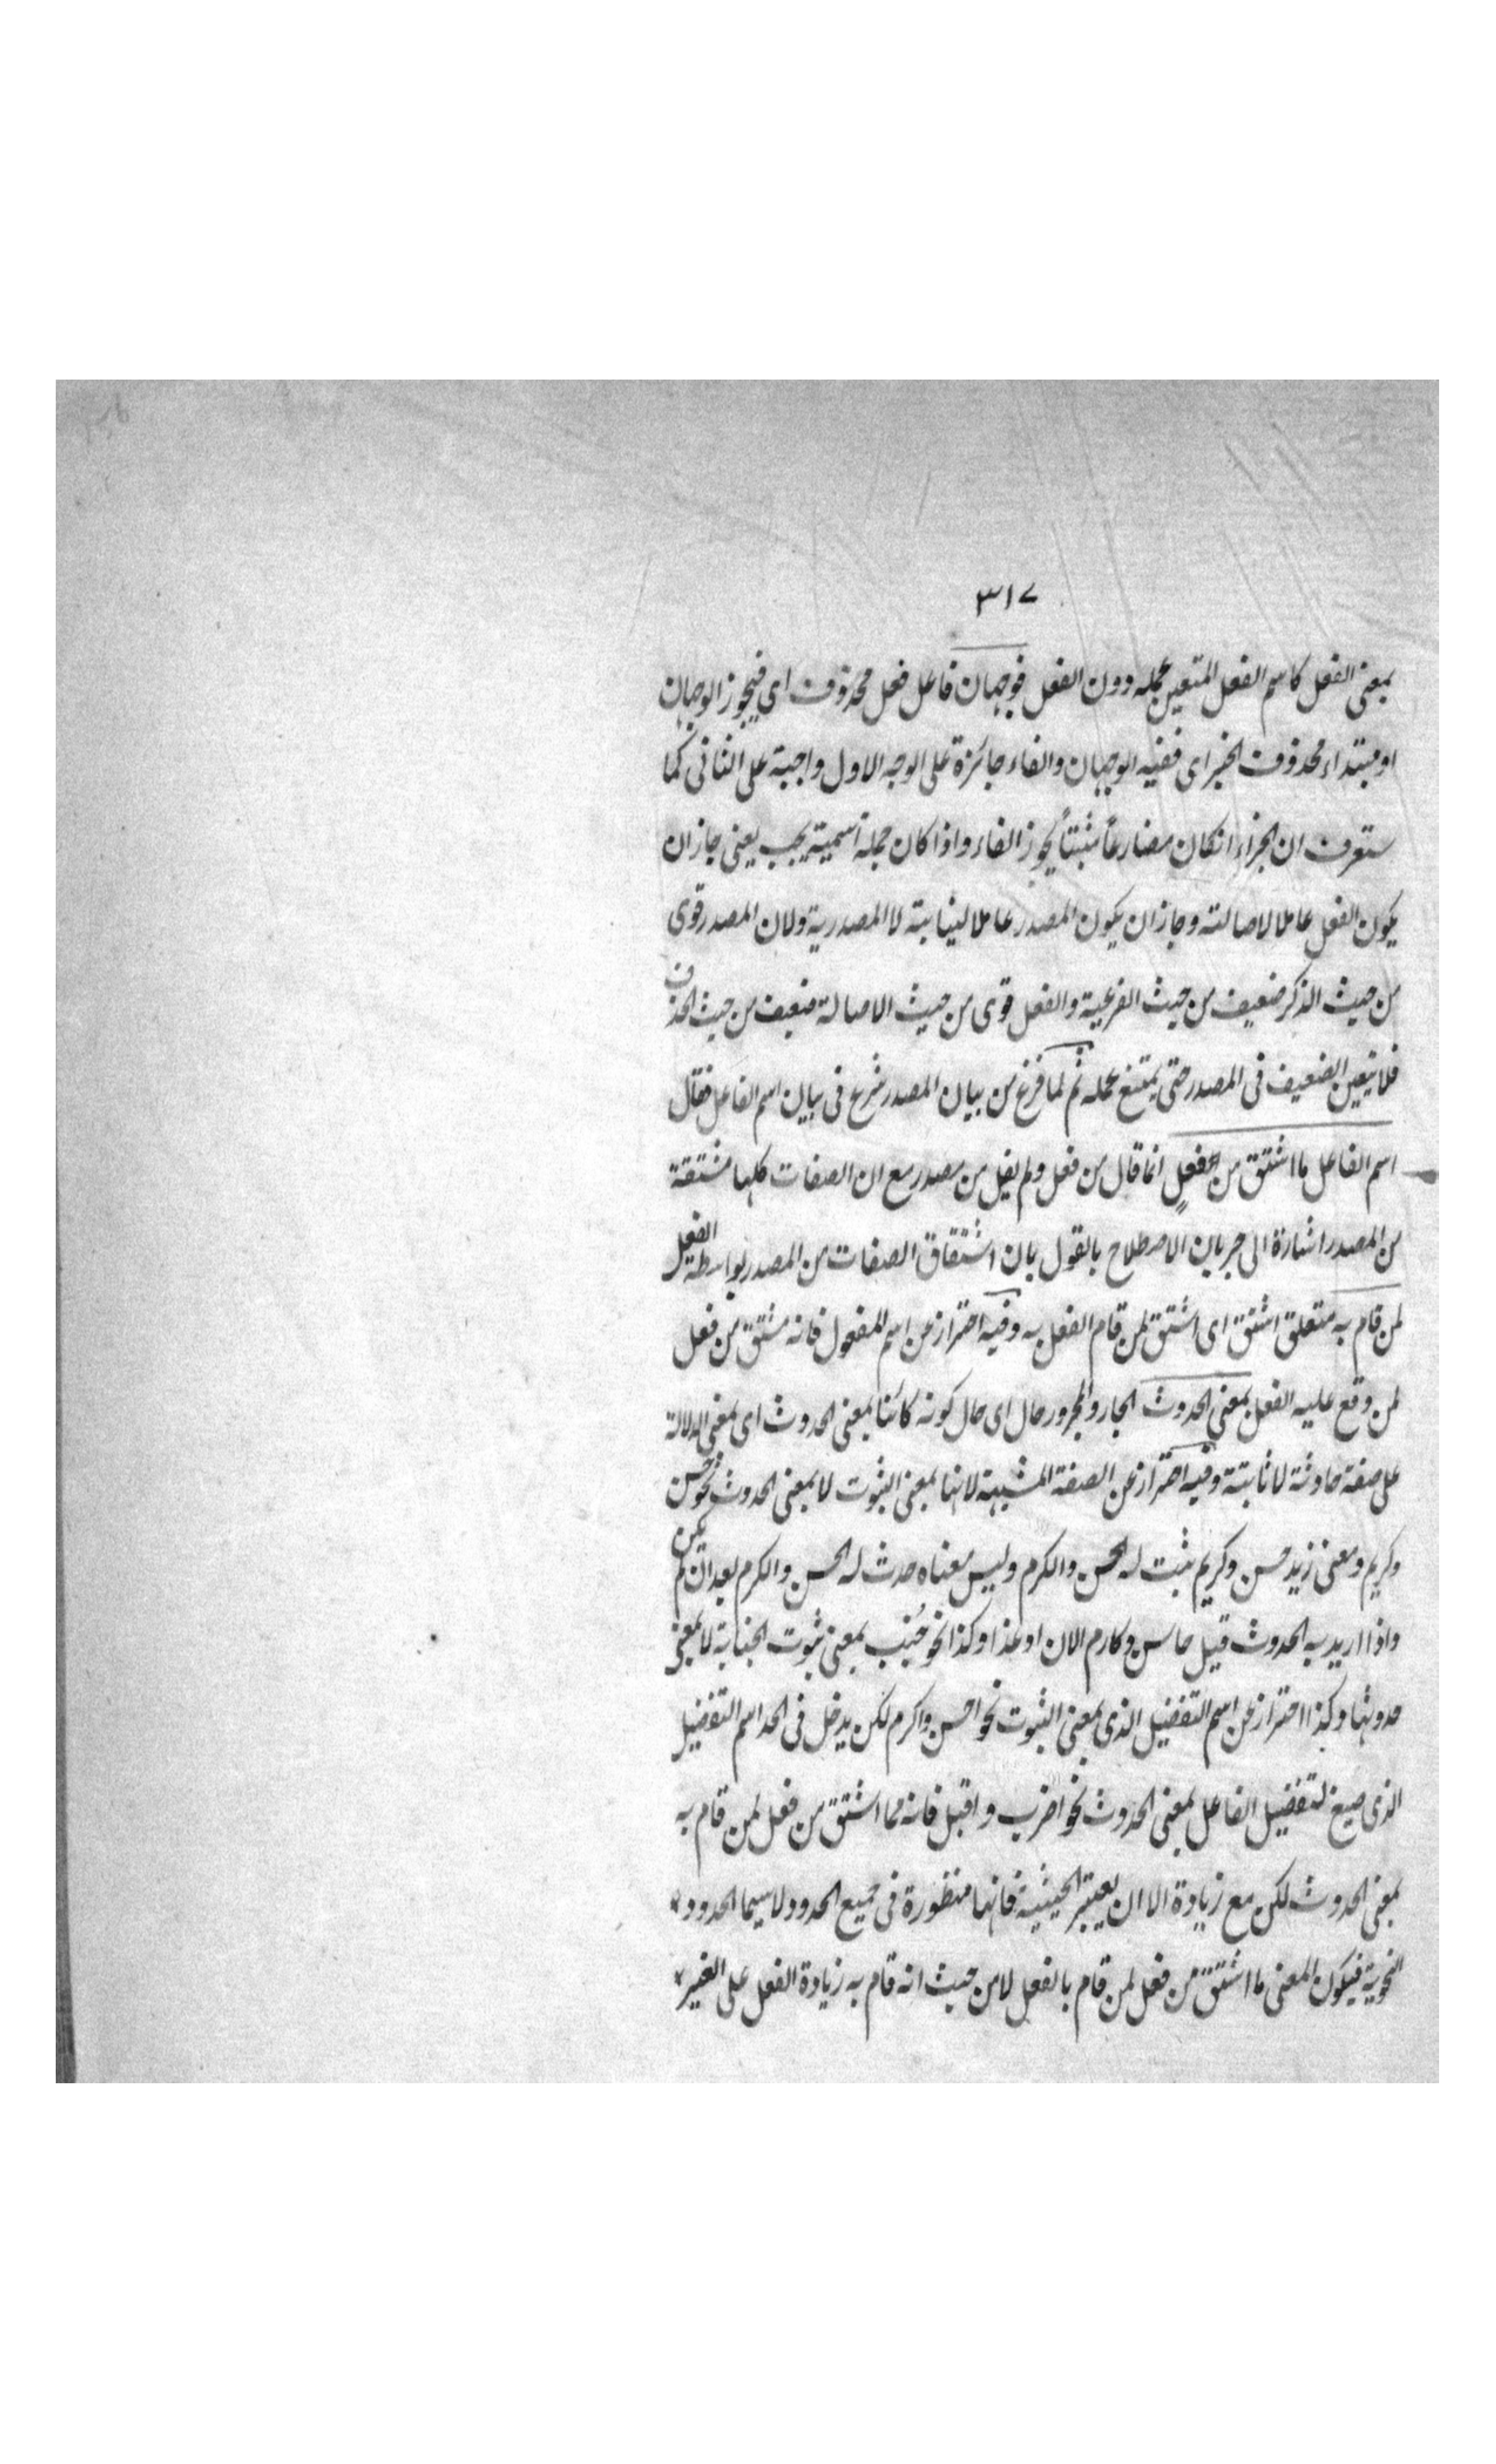 ٣١٧
بمعنى الفعل كاسم الفعل المتعين عمله دون الفعل فوجهان فاعل فعل محذوف اى فيجوز الوجهان
او مبتداء محذوف الخبر اى ففيه الوجهان والفاء جائزة على الوجه الاول واجبة على الثانى كما
ستعرف ان الجزاء انكان مضارعاً مثبتاً يجوز الفاء واذا كان جملة اسمية يجب يعنى جاز ان
يكون الفعل عاملا لاصالته وجاز ان يكون المصدر عاملا لينابته لا المصدرية ولان المصدر قوى
من حيث الذكر ضعيف من حيث الفرعية والفعل قوى من حيث الاصالة ضعيف من حيث الحذف
فلا يتعين الضعيف فى المصدر حتى يمتنع عمله ثم لما فرغ من بيان المصدر شرع فى بيان اسم الفاعل فقال
اسم الفاعل ما اشتق من فعلٍ انما قال من فعل ولم يقل من مصدر مع ان الصفات كلها مشتقة
من المصدر اشارة الى جريان الاصطلاح بالقول بان اشتقاق الصفات من المصدر بواسطة الفعل
لمن قام به متعلق اشتق اى اشتق لمن قام الفعل به وفيه احتراز عن اسم المفعول فانه مشتق من فعل
لمن وقع عليه الفعل بمعنى الحدوث الجار والمجرور حال اى حال كونه كائنا بمعنى الحدوث اى بمعنى الدلالة
على صفة حادثة لا ثابتة وفيه احتراز عن الصفة المشبهة لانها بمعنى الثبوت لا بمعنى الحدوث نحو حسن
وكريم ومعنى زيد حسن وكريم ثبت له الحسن والكرم وليس معناه حدث له الحسن والكرم بعد ان لم يكن
واذا اريد به الحدوث قيل حاسن وكارم الان او غدا وكذا نحو جُنُب بمعنى ثبوت الجنابة لا بمعنى
حدوثها وكذا احتراز عن اسم التفضيل الذى بمعنى الثبوت نحو احسن واكرم لكن يدخل فى الحد اسم التفضيل
الذى صيغ لتفضيل الفاعل بمعنى الحدوث نحو اضرب واقبل فانه مما اشتق من فعل لمن قام به
بمعنى الحدوث لكن مع زيادة الا ان يعتبر الحيثية فانها منظورة فى جميع الحدود لا سيما الحدود
النحوية فيكون المعنى ما اشتق من فعل لمن قام بالفعل لا من حيث انه قام به زيادة الفعل على الغير